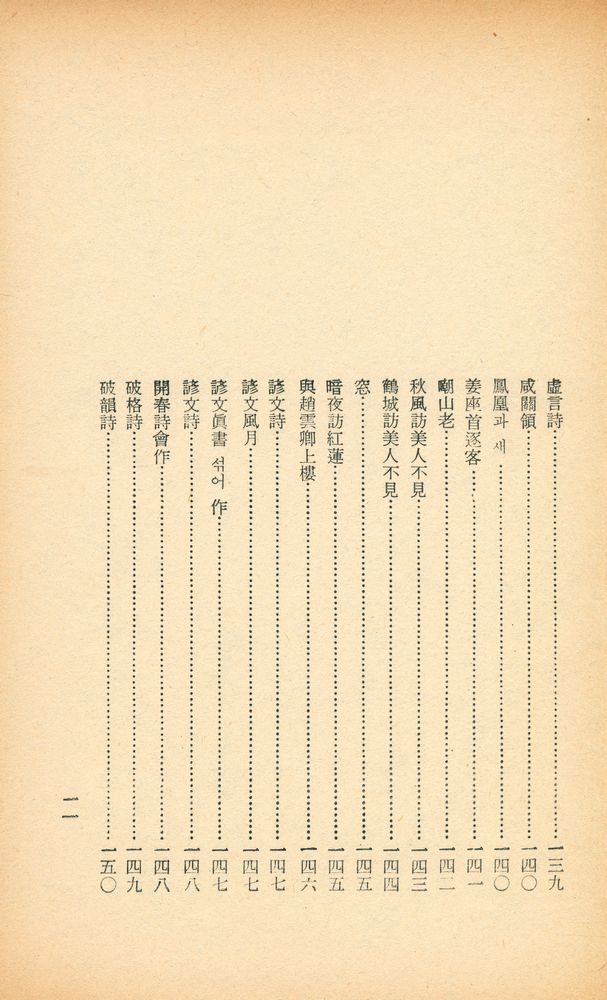 虛言詩……一三九
咸關領……一四〇
鳳凰과 새……一四〇
姜座首逐客……一四一
嘲山老……一四二
秋風訪美人不見……一四三
鶴城訪美人不見……一四四
窓……一四五
暗夜訪紅蓮……一四五
與趙雲卿上樓……一四六
諺文詩……一四七
諺文風月……一四七
諺文眞書 섞어 作……一四七
諺文詩……一四八
開春詩會作……一四八
破格詩……一四九
破韻詩……一五〇
一一